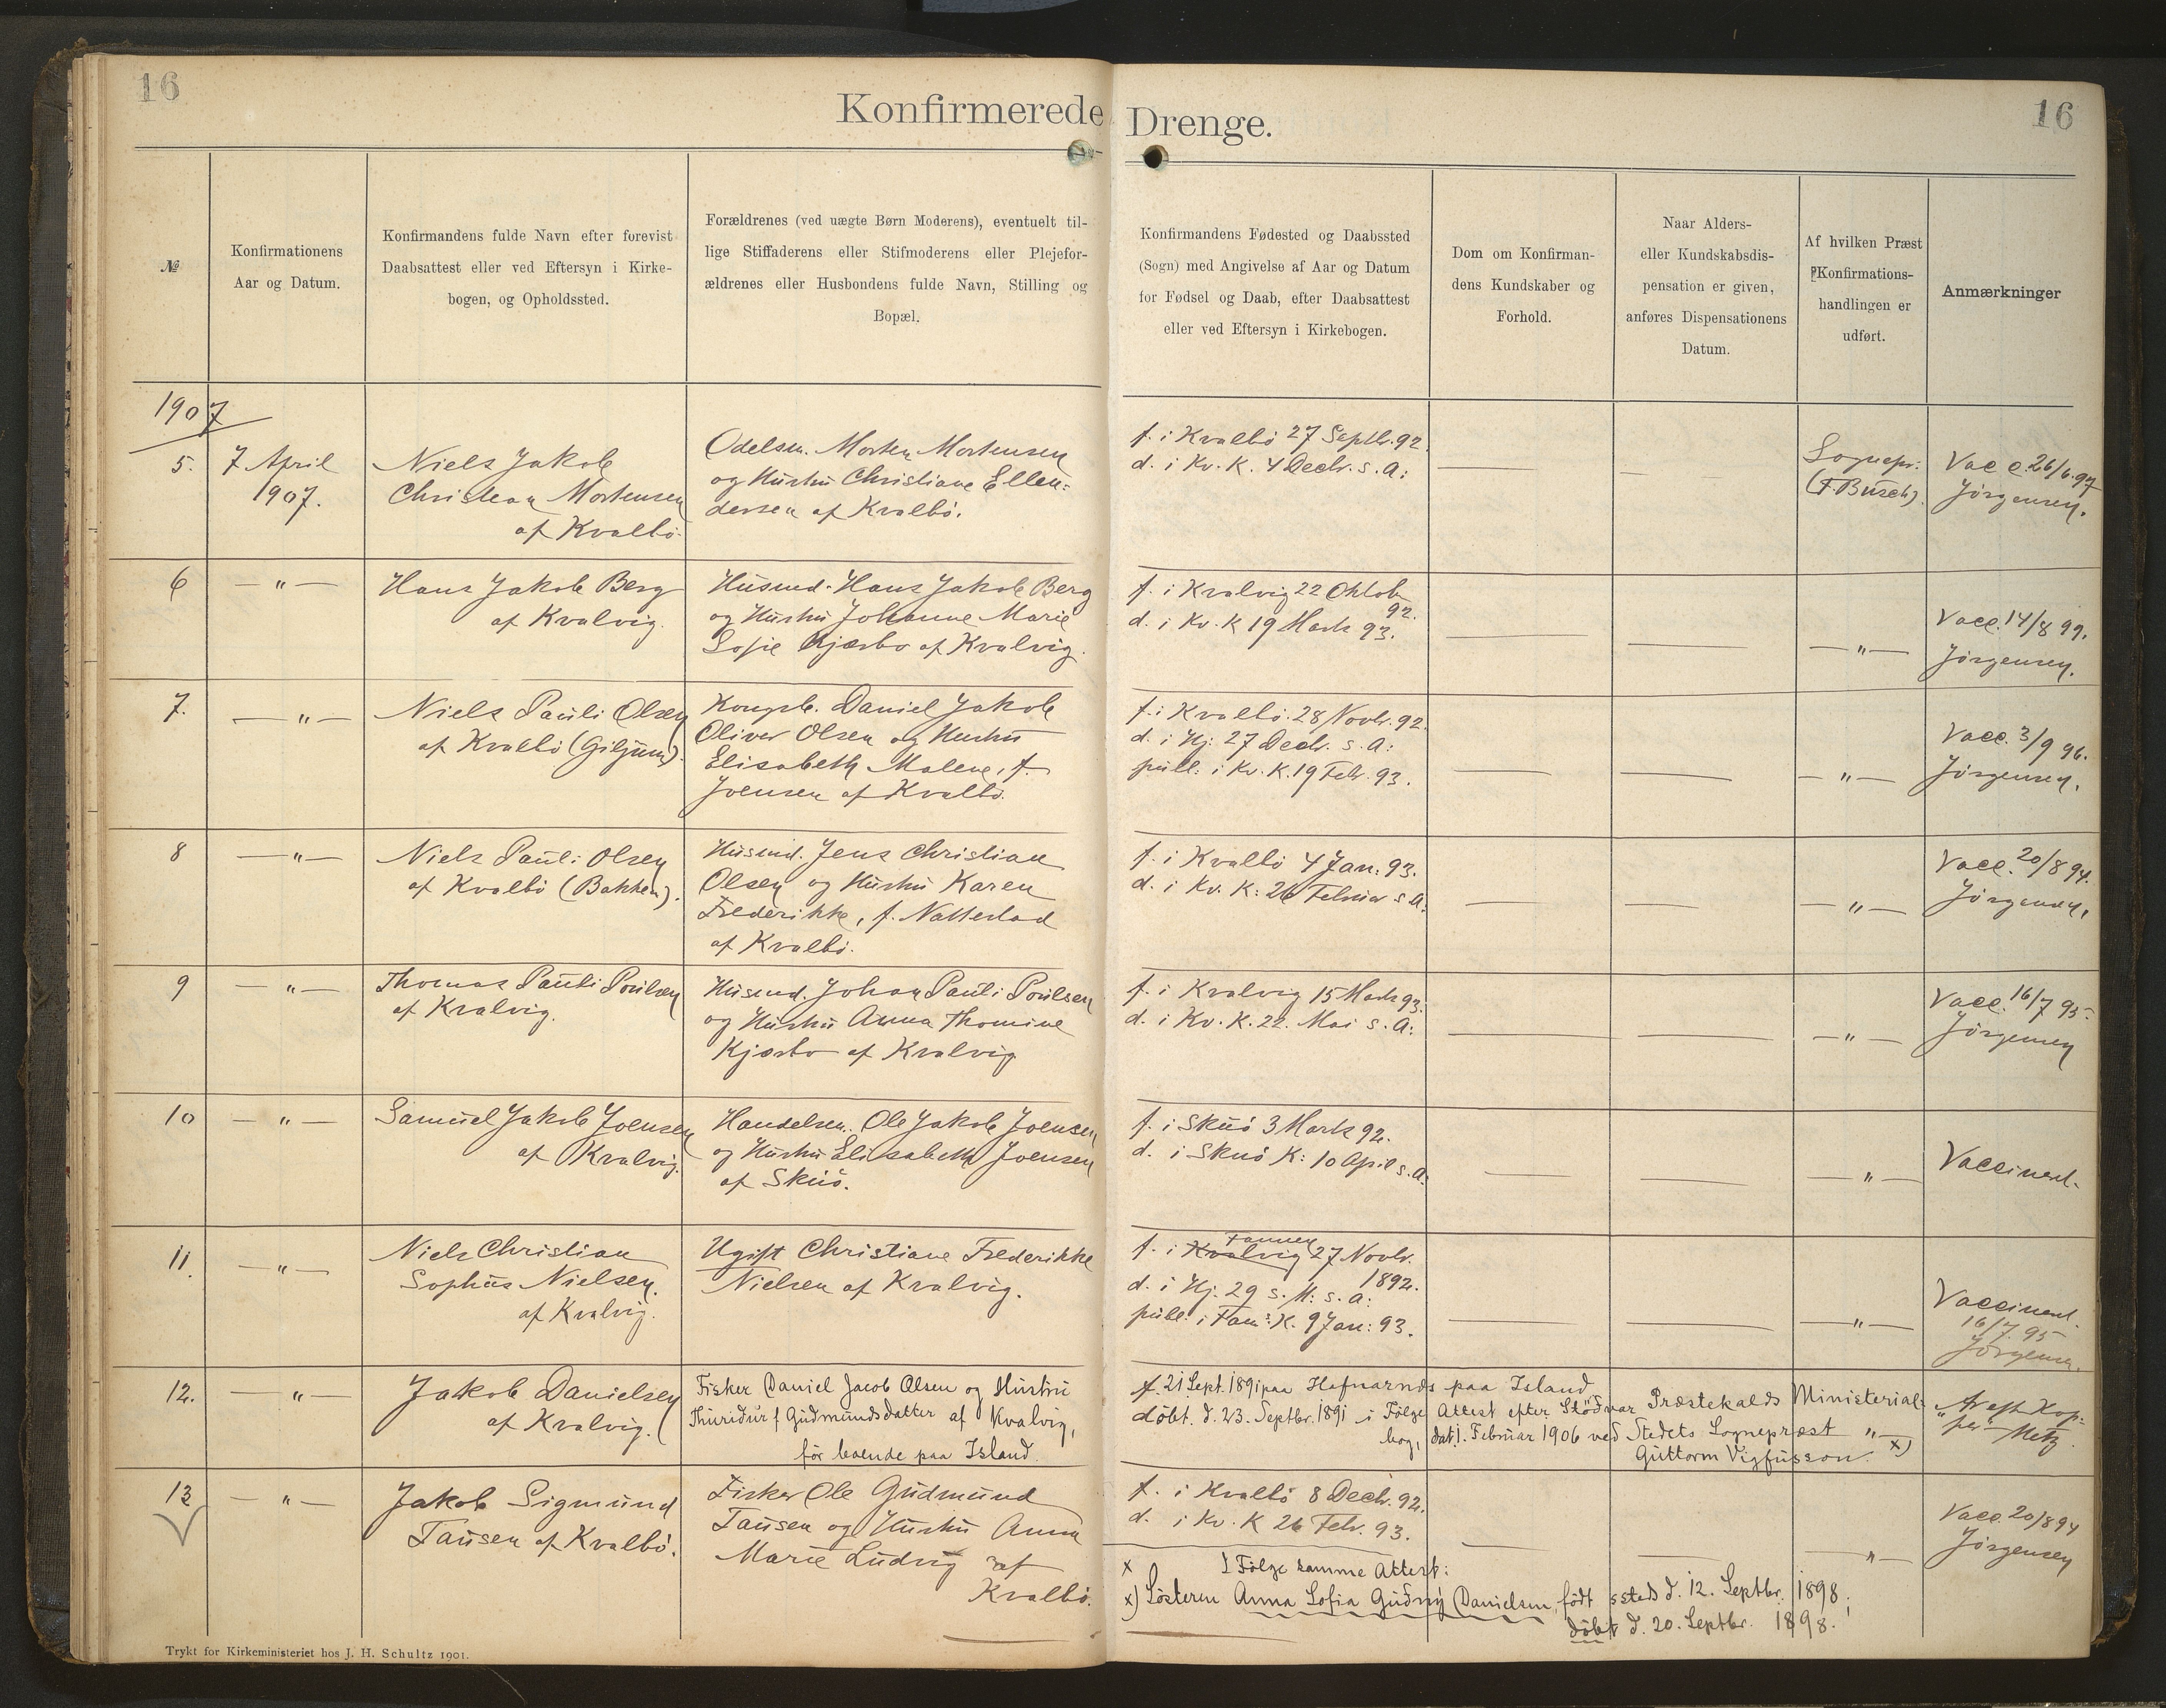 16
Konfirmerede Drenge.
16
№
Konfirmationens
Aar og Datum.
Konfirmandens fulde Navn efter forevist
Daabsattest eller ved Eftersyn i Kirke-
bogen, og Opholdssted.
Forældrenes (ved uægte Børn Moderens), eventuelt til-
lige Stiffaderens eller Stifmoderens eller Plejefor-
ældrenes eller Husbondens fulde Navn, Stilling og
Bopæl.
Konfirmandens Fødested og Daabssted
(Sogn) med Angivelse af Aar og Datum
for Fødsel og Daab, efter Daabsattest
eller ved Eftersyn i Kirkebogen.
Dom om Konfirman-
dens Kundskaber og
Forhold.
Naar Alders-
eller Kundskabsdis-
pensation er given,
anføres Dispensationens
Datum.
Af hvilken Præst
Konfirmations-
handlingen er
udført.
Anmærkninger
1907
5.
7 April
1907.
Niels Jakob
Christian Mortensen
af Kvalbö.
Odelsm. Morten Mortensen
og Hustru Christiane Ellen=
dersen af Kvalbö.
f. i Kvalbö 27 Septbr. 92.
d. i Kv. K. 4 Decbr. s. A:
Sognepr:
(F. Busch).
Vacc. 26/6 97
Jörgensen.
6
— " —
Hans Jakob Berg
af Kvalvig.
Husmd. Hans Jakob Berg
og Hustru Johanne Marie
Sofie Kjærbo af Kvalvig.
f. i Kvalvig 22 Oktob
92.
d. i Kv. K 19 Marts 93.
— " —
Vacc. 14/8 99.
Jörgensen.
7.
— " —
Niels Pauli Olsen
af Kvalbö (Giljum).
Kongsb. Daniel Jakob
Oliver Olsen og Hustru
Elisabeth Malene, f.
Joensen af Kvalbö.
f. i Kvalbö 28 Novbr. 92.
d. i Hj. 27 Decbr. s. A:
publ: i Kv. K. 19 Febr. 93.
— " —
Vacc. 3/9 96.
Jörgensen.
8
— " —
Niels Pauli Olsen
af Kvalbö (Bakken).
Husmd. Jens Christian
Olsen og Hustru Karen
Frederikke, f. Nattestad
af Kvalbö.
f. i Kvalbö 4 Jan: 93.
d. i Kv. K: 26 Februar s. A:
— " —
Vacc. 20/8 94.
Jörgensen.
9
— " —
Thomas Pauli Poulsen
af Kvalvig.
Husmd. Johan Pauli Poulsen
og Hustru Anna Thomine
Kjærbo af Kvalvig
f. i Kvalvig 15 Marts 93.
d. i Kv. K. 22. Mai s. A:
— " —
Vacc. 16/7 95.
Jörgensen
10
— " —
Samuel Jakob Joensen
af Kvalvig.
Handelsm. Ole Jakob Joensen
og Hustru Elisabeth Joensen
af Skuö.
f. i Skuö 3 Marts 92.
d. i Skuö K: 10 April s. A:
— " —
Vaccineret.
11.
— " —
Niels Christian
Sophus Nielsen.
af Kvalvig.
Ugift Christiane Frederikke
Nielsen af Kvalvig.
Famien
f. i Kvalvig 27 Novbr.
1892.
d. i Hj. 29 s. M: s. A:
publ: i Fam: K. 9 Jan: 93.
— " —
Vaccineret.
16/7. 95
Jörgensen.
12.
— " —
Jakob Danielsen
af Kvalvig.
Fisker Daniel Jacob Olsen og Hustru
Thuridur f Gudmundsdatter af Kvalvig,
för boende paa Island.
f. 21 Sept. 1891 paa Hafnarnes paa Island
döbt. d. 23. Septbr. 1891 i Fölge Attest efter Stödvar Præstekalds Ministerial=
bog, dat. 1. Februar 1906 ved Stedets Sognepræst " —
Guttorm Vigfusson. x)
Metz.
13
— " —
Jakob Sigmund
Tausen af Kvalbö.
Fisker Ole Gudmund
Tausen og Hustru Anna
Marie Ludvig af
Kvalbö.
f. i Kvalbö 8 Decbr. 92.
d. i Kv. K 26 Febr. 93.
— " —
Vacc. 20/8 94
Jörgensen
x
I Fölge samme Attest:
x) Søsteren Anna Sofia Gudny Danielsen, født sstds d. 12. Septbr. 1898;
döbt d. 20. Septbr. 1898.
Trykt for Kirkeministeriet hos J. H. Schultz 1901.